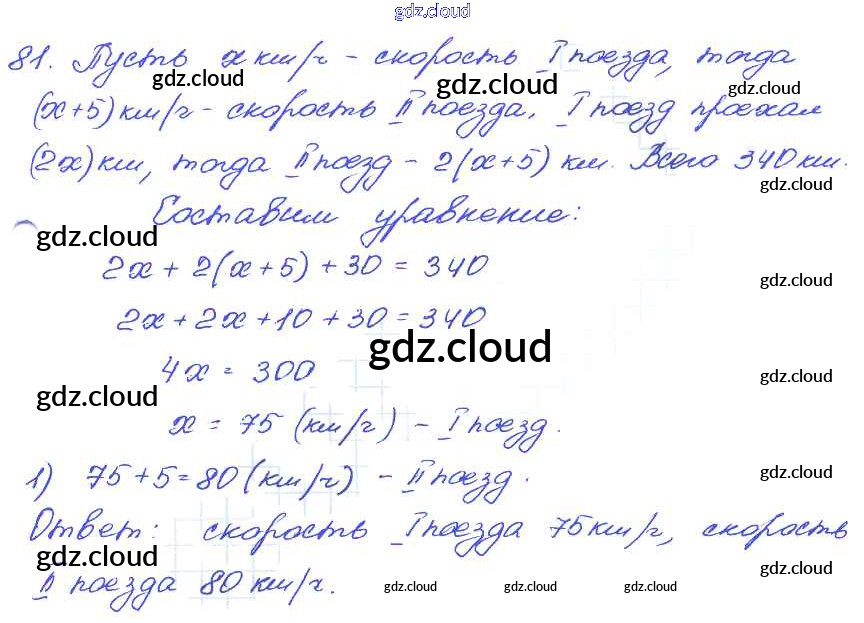 gdz.cloud
81. Пусть x км/ч - скорость I поезда, тогда
gdz.cloud gdz.cloud gdz.cloud
(x+5) км/ч - скорость II поезда. I поезд проехал
(2x) км, тогда II поезд - 2(x+5) км. Всего 340 км.
gdz.cloud
Составим уравнение:
gdz.cloud
2x + 2(x+5) + 30 = 340
gdz.cloud
2x + 2x + 10 + 30 = 340
gdz.cloud
4x = 300
gdz.cloud gdz.cloud
x = 75 (км/ч) - I поезд.
1) 75+5=80 (км/ч) - II поезд.
gdz.cloud
Ответ: скорость I поезда 75 км/ч, скорость
gdz.cloud gdz.cloud
II поезда 80 км/ч.
gdz.cloud gdz.cloud gdz.cloud